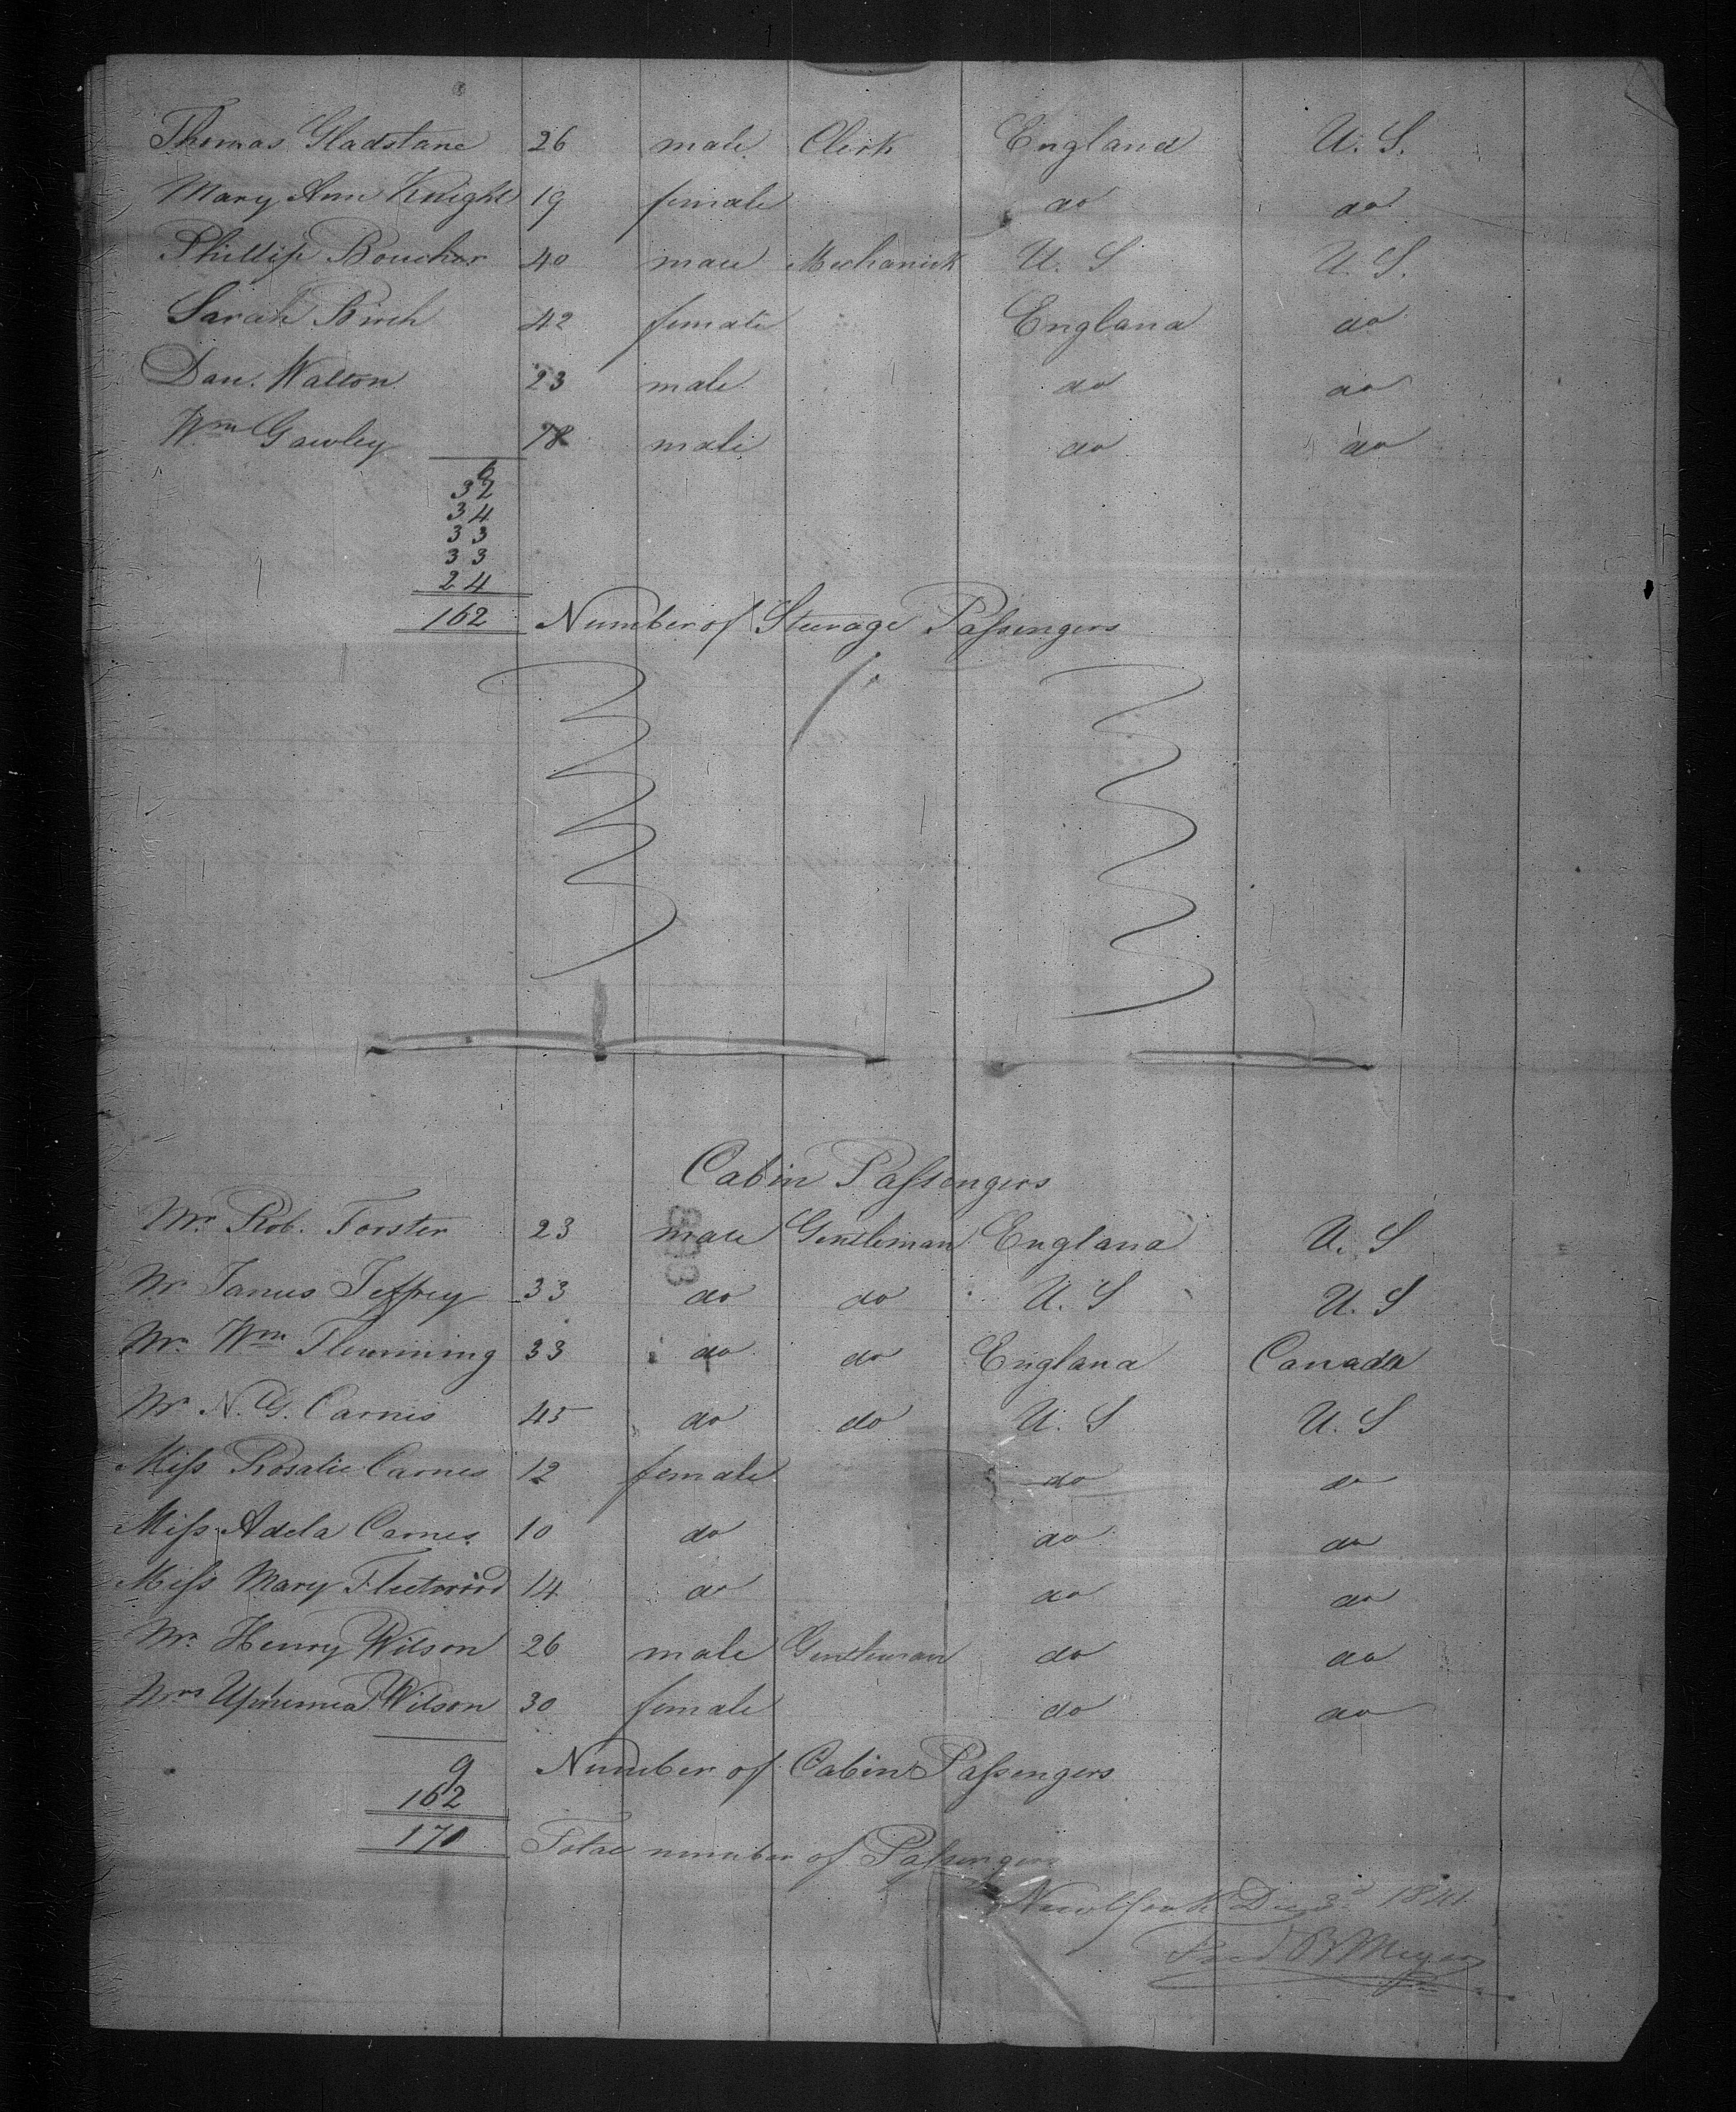 Thomas Gladstane 26 male Clerk England U. S.
Mary Ann Knight 19 female do do
Phillip Boucher 40 male Mechanick U. S U. S.
Sarah Birch 42 female England do
Dan. Walton 23 male do do
Wm Gawley 78 male do do
6
32
34
33
33
24
162 Number of Steerage Passengers
Cabin Passengers
Mr Rob. Forster 23 male Gentleman England U. S
Mr James Jeffrey 33 do do U. S U. S
Mr. Wm Flemming 33 do do England Canada
Mr N. G. Carnes 45 do do U. S U. S
Miss Rosalie Carnes 12 female do do
Miss Adela Carnes 10 do do do
Miss Mary Fleetwood 14 do do do
Mr. Henry Wilson 26 male Gentleman do do
Mrs Uphemea Wilson 30 female do do
9 Number of Cabin Passengers
162
170 Total number of Passengers
New York Dec 3d 1841